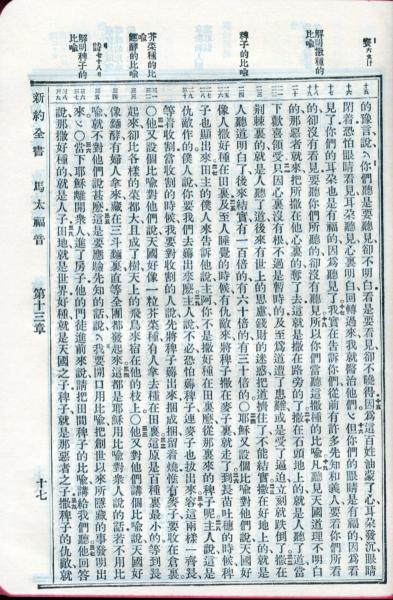 賽六9,10
解明撒種的比喻
稗子的比喻
芥菜種的比喻
麵酵的比喻
詩七十八2
解明稗子的比喻
的豫言說、你們聽是要聽見卻不明白.看是要看見卻不曉得.因爲這百姓油蒙了心耳朵發沉眼睛
閉着.恐怕眼睛看見耳朵聽見心裏明白回轉過來我就醫治他們。但你們的眼睛是有福的因爲看
見了.你們的耳朵也是有福的因爲聽見了.我實在告訴你們從前有許多先知和義人.要看你們所看
的卻沒有看見.要聽你們所聽的卻沒有聽見.所以你們當聽這撒種的比喻.凡聽見天國道理不明白
的那惡者就來把所撒在他心裏的奪了去.這就是撒在路旁的了.撒在石頭地上的就是人聽了道當
下歡喜領受.只因心裏沒有根不過是暫時的.及至爲道遭了患難或是受了逼迫立刻就跌倒了.撒在
荊棘裏的就是人聽了道後來有世上的思慮錢財的迷惑把道擠住了不能結實.撒在好地上的就是
人聽道明白了後來結實有一百倍的有六十倍的有三十倍的。耶穌又設個比喻對他們說天國好
像人撒好種在田裏.及至人睡覺的時候有仇敵來將稗子撒在麥子裏就走了.到長苗吐穗的時候稗
子也顯出來.田主的僕人來告訴他說主阿你不是撒好種在田裏麽從那裏來的稗子呢.主人說這是
仇敵作的.僕人說你要我們去薅出來麽.主人說不必恐怕薅稗子連麥子也拔出來.容這兩樣一齊長
等着收割.當收割的時候我要對收割的人說先將稗子薅出來捆成捆留着燒.惟有麥子要收在倉裏
〇他又設個比喻對他們說天國好像一粒芥菜種有人拿去種在田裏.這原是百種裏最小的.等到長
起來卻比各樣的菜都大且成了樹天上的飛鳥來宿在他的枝上。〇他又對他們講個比喻說天國好
像麵酵有婦人拿來藏在三斗麵裏直等全團都發起來。這都是耶穌用比喻對眾人說的話.若不用比
喻就不對他們說甚麽.這是要應驗先知的話說、我要開口用比喻把創世以來所隱藏的事發明出
來。〇當下耶穌離開眾人進了房子.他的門徒進前來說請把田間稗子的比喻講給我們聽.他回答
說那撒好種的就是人子.田地就是世界.好種就是天國之子.稗子就是那惡者之子.撒稗子的仇敵就
新約全書 馬太福音 第十三章 十七